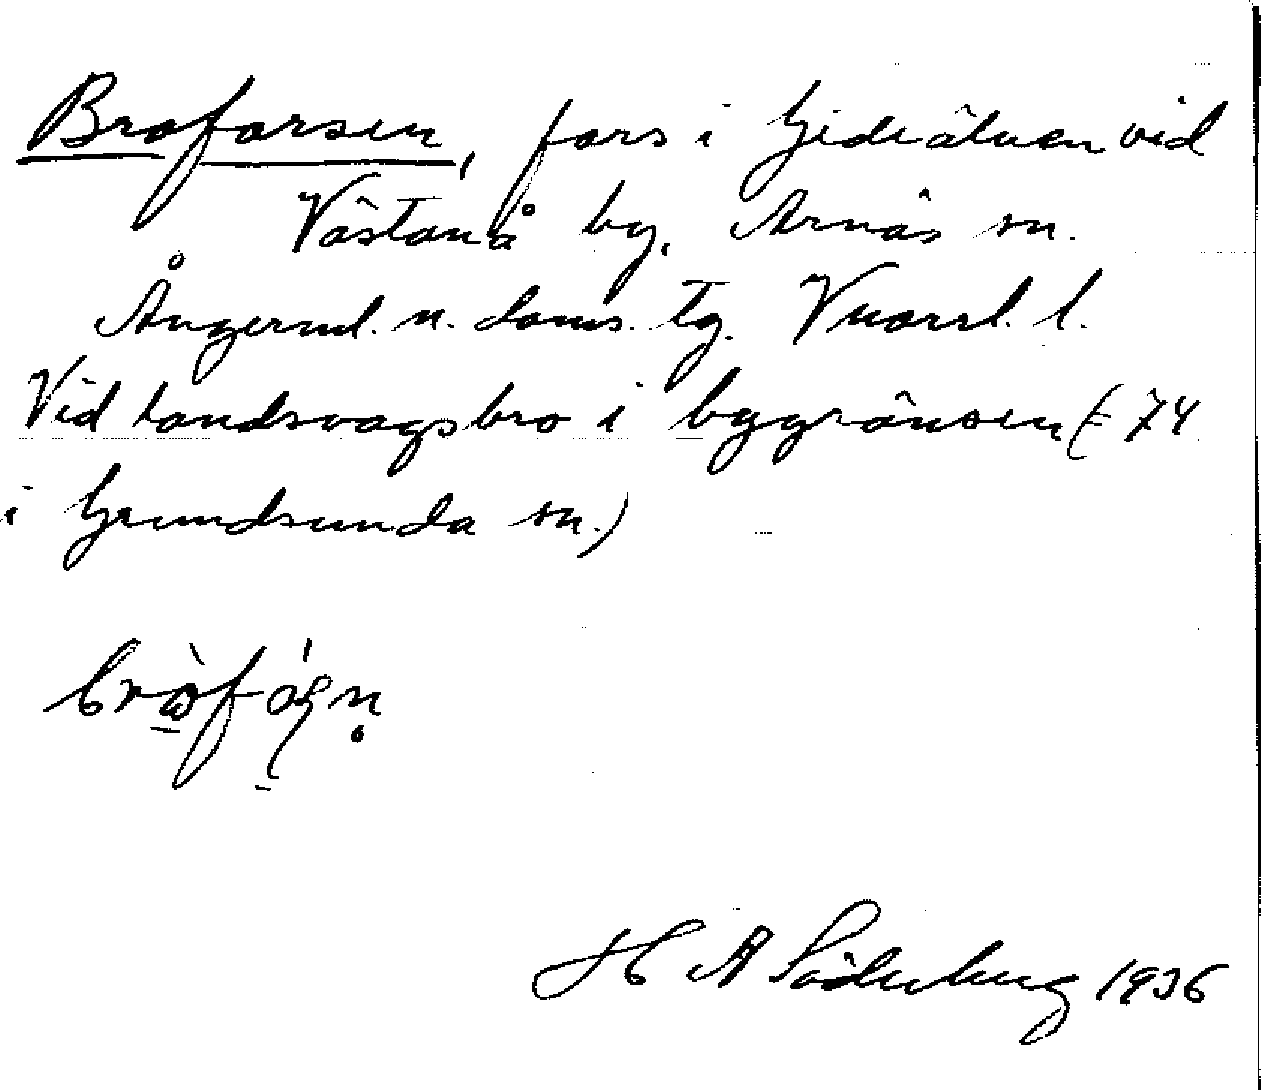 Broforsen, fors i Gideälven vid
Västanå by, Arnäs sn.
Ångerml. n. doms. tg. Vnorrl. l.
Vid landsvägsbro i bygränsen (= 74
i Grundsunda sn.)
H A Söderberg 1936